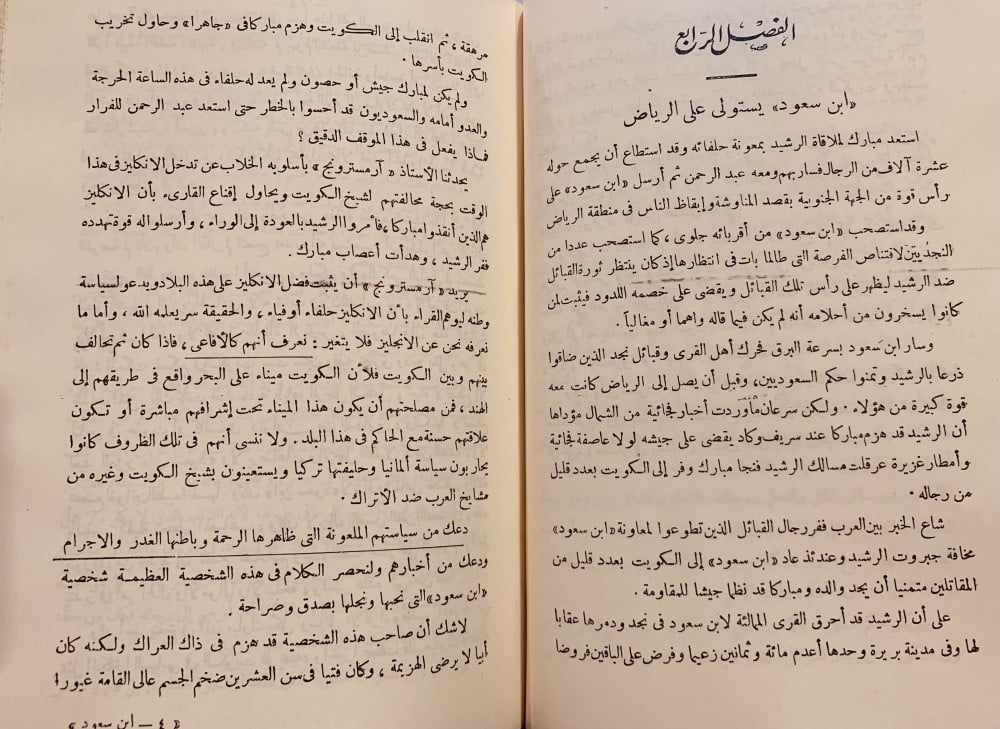 الفصل الرابع
«ابن سعود» يستولى على الرياض
استعد مبارك لملاقاة الرشيد بمعونة حلفائه وقد استطاع أن يجمع حوله
عشرة آلاف من الرجال فسار بهم ومعه عبد الرحمن ثم أرسل «ابن سعود» على
رأس قوة من الجهة الجنوبية بقصد المناوشة وإيقاظ الناس فى منطقة الرياض
وقد استصحب «ابن سعود» من أقربائه جلوى، كما استصحب عددا من
النجديين لاقتناص الفرصة التى طالما بات فى انتظارها إذ كان ينتظر ثورة القبائل
ضد الرشيد ليظهر على رأس تلك القبائل ويقضى على خصمه اللدود فيثبت لمن
كانوا يسخرون من أحلامه أنه لم يكن فيما قاله واهما أو مغالياً.
وسار ابن سعود بسرعة البرق فحرك أهل القرى وقبائل نجد الذين ضاقوا
ذرعا بالرشيد وتمنوا حكم السعوديين، وقبل أن يصل إلى الرياض كانت معه
قوة كبيرة من هؤلاء. ولكن سرعان ما وردت أخبار فجائية من الشمال مؤداها
أن الرشيد قد هزم مباركا عند سريف وكاد يقضى على جيشه لولا عاصفة فجائية
وأمطار غزيرة عرقلت مسالك الرشيد فنجا مبارك وفر إلى الكويت بعدد قليل
من رجاله.
شاع الخبر بين العرب ففر رجال القبائل الذين تطوعوا لمعاونة «ابن سعود»
مخافة جبروت الرشيد وعندئذ عاد «ابن سعود» إلى الكويت بعدد قليل من
المقاتلين متمنيا أن يجد والده ومباركا قد نظما جيشا للمقاومة.
على أن الرشيد قد أحرق القرى الممالئة لابن سعود فى نجد ودمرها عقابا
لها وفى مدينة بريرة وحدها أعدم مائة وثمانين زعيما وفرض على الباقين فروضا
مرهقة، ثم انقلب إلى الكويت وهزم مباركا فى «جاهرا» وحاول تخريب
الكويت بأسرها.
ولم يكن لمبارك جيش أو حصون ولم يعد له حلفاء فى هذه الساعة الحرجة
والعدو أمامه والسعوديون قد أحسوا بالخطر حتى استعد عبد الرحمن للفرار
فماذا يفعل فى هذا الموقف الدقيق؟
يحدثنا الأستاذ «آرمسترونج» بأسلوبه الخلاب عن تدخل الانكليز فى هذا
الوقت بحجة محالفتهم لشيخ الكويت ويحاول إقناع القارىء بأن الانكليز
هم الذين أنقذوا مباركا، فأمروا الرشيد بالعودة إلى الوراء، وأرسلوا له قوة تهدده
ففر الرشيد، وهدأت أعصاب مبارك.
يريد «آرمسترونج» أن يثبت فضل الانكليز على هذه البلاد ويدعو لسياسة
وطنه ليوهم القراء بأن الانكليز حلفاء أوفياء، والحقيقة سر يعلمه الله، وأما ما
نعرفه نحن عن الانجليز فلا يتغير: نعرف أنهم كالأفاعى، فاذا كان ثم تحالف
بينهم وبين الكويت فلأن الكويت ميناء على البحر واقع فى طريقهم إلى
الهند، فمن مصلحتهم أن يكون هذا الميناء تحت إشرافهم مباشرة أو تكون
علاقتهم حسنة مع الحاكم فى هذا البلد. ولا ننسى أنهم فى تلك الظروف كانوا
يحاربون سياسة ألمانيا وحليفتها تركيا ويستعينون بشيخ الكويت وغيره من
مشايخ العرب ضد الأتراك.
دعك من سياستهم الملعونة التى ظاهرها الرحمة وباطنها الغدر والاجرام
ودعك من أخبارهم ولنحصر الكلام فى هذه الشخصية العظيمة شخصية
«ابن سعود» التى نحبها ونجلها بصدق وصراحة.
لاشك أن صاحب هذه الشخصية قد هزم فى ذاك العراك ولكنه كان
أبيا لا يرضى الهزيمة، وكان فتيا فى سن العشرين ضخم الجسم عالى القامة غيورا
«٤ — ابن سعود»